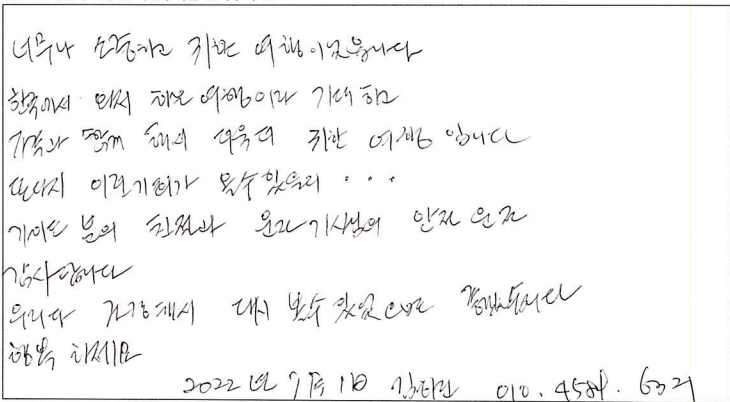 너무나 소중하고 귀한 여행이었읍니다
한국에서 와서 하는 여행이라 기대하고
가족과 함께 해서 더욱더 귀한 여행 입니다
또다시 이런기회가 올수있을지 . . .
가이드 분의 친절과 운전기사님의 안전 운전
감사합니다
우리다 건강해서 다시 볼수 있었으면 좋겠습니다
행복 하세요
2022년 7월 1일 010.4584.